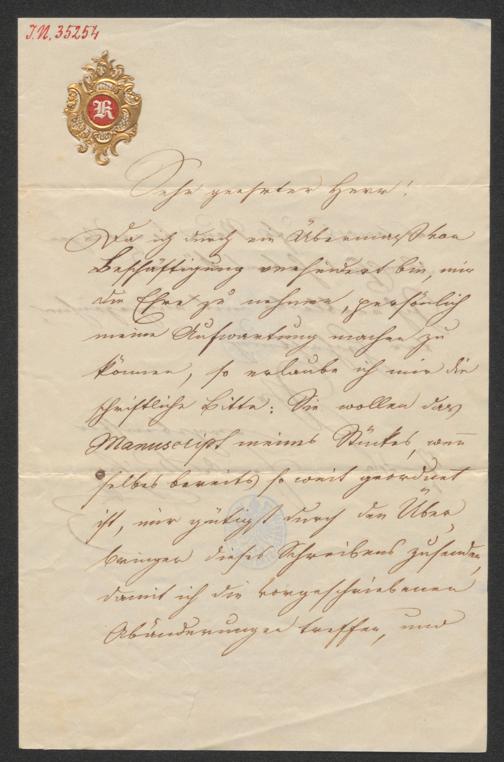 J.N. 35254
K
Sehr geehrter Herr!
Da ich durch ein Übermaß von
Beschäftigung verhindert bin, mir
die Ehre zu nehmen, persönlich
meine Aufwartung machen zu
können, so erlaube ich mir die
schriftliche Bitte: Sie wollen das
Manuscript meines Stückes, wenn
selbes bereits so weit geordnet
ist, mir gütigst durch den Über
bringer dieses Schreibens zusenden,
damit ich die vorgeschriebenen
Abänderungen treffen, und